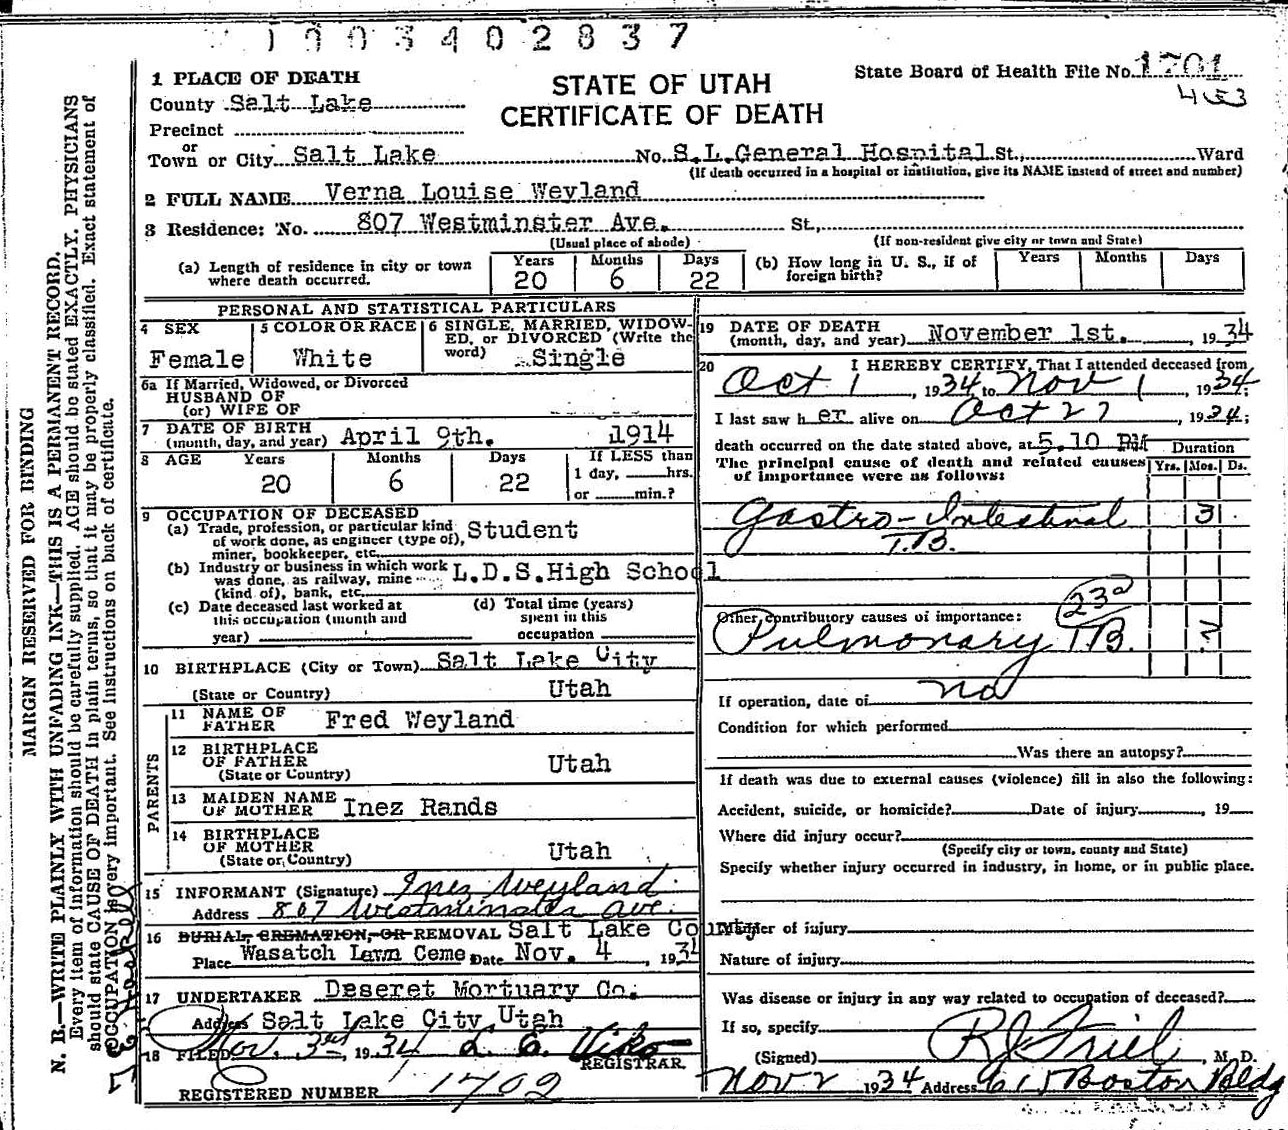 1003402837
STATE OF UTAH
CERTIFICATE OF DEATH
State Board of Health File No. 1701
453
1 PLACE OF DEATH
County Salt Lake
Precinct
or
Town or City Salt Lake No. S.L.General Hospital St., Ward
(If death occurred in a hospital or institution, give its NAME instead of street and number)
2 FULL NAME Verna Louise Weyland
3 Residence: No. 807 Westminster Ave. St.,
(Usual place of abode) (If non-resident give city or town and State)
(a) Length of residence in city or town where death occurred. Years 20 Months 6 Days 22
(b) How long in U. S., if of foreign birth? Years Months Days
PERSONAL AND STATISTICAL PARTICULARS
4 SEX Female
5 COLOR OR RACE White
6 SINGLE, MARRIED, WIDOWED, or DIVORCED (Write the word) Single
6a If Married, Widowed, or Divorced
HUSBAND OF
(or) WIFE OF
7 DATE OF BIRTH
(month, day, and year) April 9th. 1914
8 AGE Years 20 Months 6 Days 22 If LESS than
1 day, hrs.
or min.?
9 OCCUPATION OF DECEASED
(a) Trade, profession, or particular kind of work done, as engineer (type of), miner, bookkeeper, etc. Student
(b) Industry or business in which work was done, as railway, mine (kind of), bank, etc. L.D.S.High School
(c) Date deceased last worked at this occupation (month and year)
(d) Total time (years) spent in this occupation
10 BIRTHPLACE (City or Town) Salt Lake City
(State or Country) Utah
PARENTS
11 NAME OF FATHER Fred Weyland
12 BIRTHPLACE OF FATHER
(State or Country) Utah
13 MAIDEN NAME OF MOTHER Inez Rands
14 BIRTHPLACE OF MOTHER
(State or Country) Utah
15 INFORMANT (Signature) Inez Weyland
Address 807 Westminster Ave.
16 BURIAL, CREMATION, OR REMOVAL Salt Lake County
Place Wasatch Lawn Ceme Date Nov. 4, 1934
17 UNDERTAKER Deseret Mortuary Co.
Address Salt Lake City, Utah
18 FILED Nov. 3rd, 1934
REGISTRAR.
REGISTERED NUMBER 1702
19 DATE OF DEATH
(month, day, and year) November 1st., 1934
20 I HEREBY CERTIFY, That I attended deceased from
Oct 1, 1934 to Nov 1, 1934;
I last saw her alive on Oct 27, 1934;
death occurred on the date stated above, at 5.10 PM
The principal cause of death and related causes of importance were as follows:
Duration
Yrs. Mos. Ds.
Gastro-Intestinal 3
T.B.
23a
Other contributory causes of importance:
Pulmonary T.B. 2
If operation, date of no
Condition for which performed
Was there an autopsy?
If death was due to external causes (violence) fill in also the following:
Accident, suicide, or homicide? Date of injury, 19
Where did injury occur?
(Specify city or town, county and State)
Specify whether injury occurred in industry, in home, or in public place.
Manner of injury
Nature of injury
Was disease or injury in any way related to occupation of deceased?
If so, specify
(Signed) R J Friel, M. D.
Nov 2 1934 Address 615 Boston Bldg
MARGIN RESERVED FOR BINDING
N. B.—WRITE PLAINLY WITH UNFADING INK—THIS IS A PERMANENT RECORD.
Every item of information should be carefully supplied. AGE should be stated EXACTLY. PHYSICIANS
should state CAUSE OF DEATH in plain terms, so that it may be properly classified. Exact statement of
OCCUPATION is very important. See instructions on back of certificate.